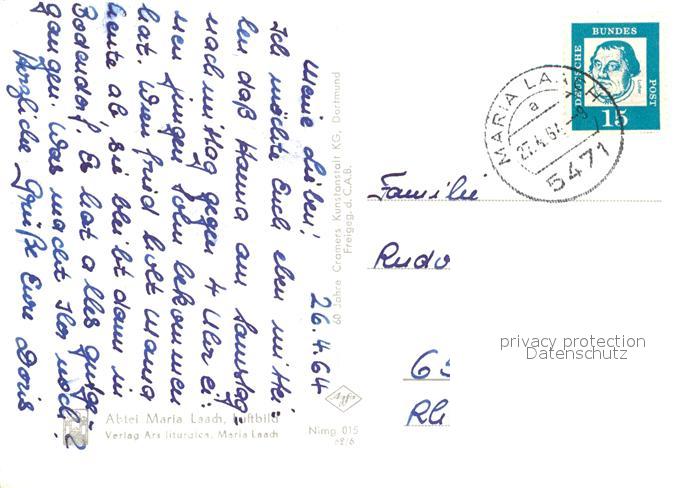 26.4.64
Meine Lieben!
Ich möchte Euch eben mittei-
len, daß Hanna am Samstag-
nachmittag gegen 4 Uhr ei-
nen jungen Sohn bekommen
hat. Winfried holt Mama
heute ab sie bleibt dann in
Bodendorf. Es hat alles gutge-
gangen. Was macht Ihr noch?
Herzliche Grüße Eure Doris
60 Jahre Cramers Kunstanstalt KG, Dortmund
Freigeg. d. C.A.B.
Abtei Maria Laach, Luftbild
Verlag Ars liturgica, Maria Laach
Nimg. 015
62/6
Agfa
DEUTSCHE BUNDES POST
Luther
15
MARIA LA
a
5471
Familie
Rudo
65
Rh
privacy protection
Datenschutz